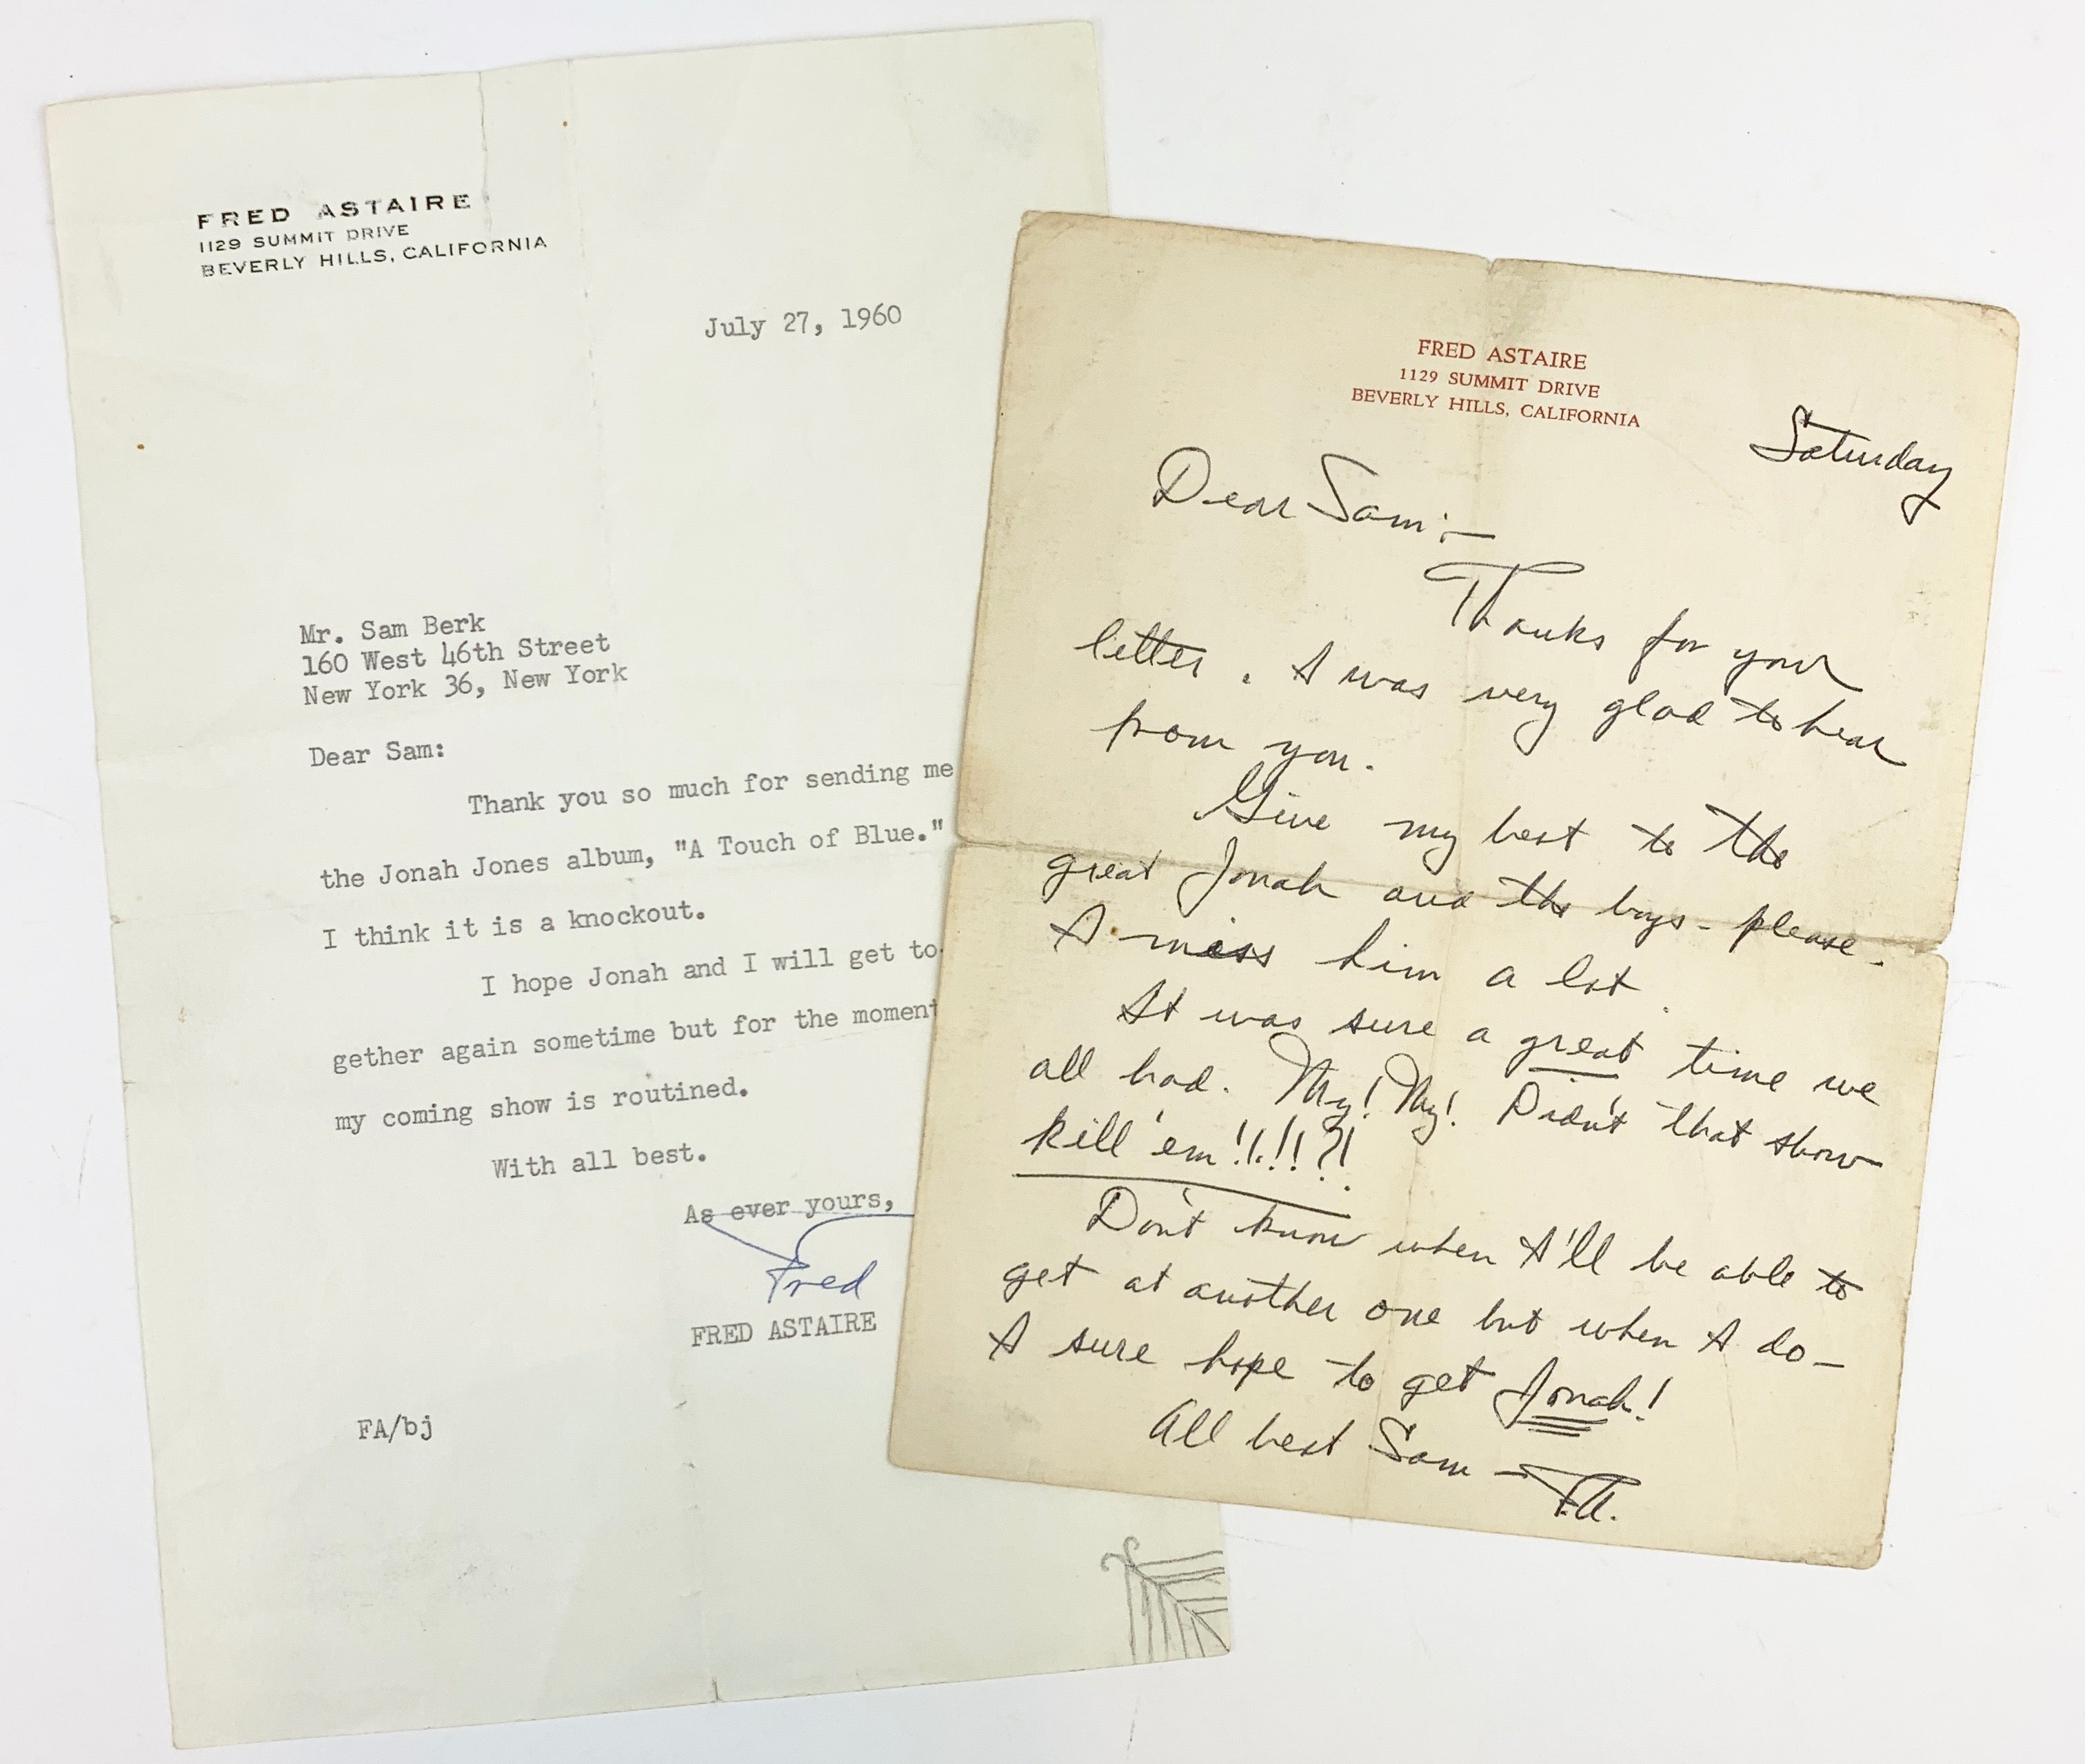 FRED ASTAIRE
1129 SUMMIT DRIVE
BEVERLY HILLS, CALIFORNIA
July 27, 1960
Mr. Sam Berk
160 West 46th Street
New York 36, New York
Dear Sam:
Thank you so much for sending me
the Jonah Jones album, "A Touch of Blue."
I think it is a knockout.
I hope Jonah and I will get to
gether again sometime but for the moment
my coming show is routined.
With all best.
As ever yours,
Fred
FRED ASTAIRE
FA/bj
FRED ASTAIRE
1129 SUMMIT DRIVE
BEVERLY HILLS, CALIFORNIA
Saturday
Dear Sam:—
Thanks for your
letter. I was very glad to hear
from you.
Give my best to the
great Jonah and the boys - please.
I miss him a lot.
It was sure a great time we
all had. My! My! Didn't that show
kill 'em!!!!?!
Don't know when I'll be able to
get at another one but when I do—
I sure hope to get Jonah!
All best Sam —
F.A.